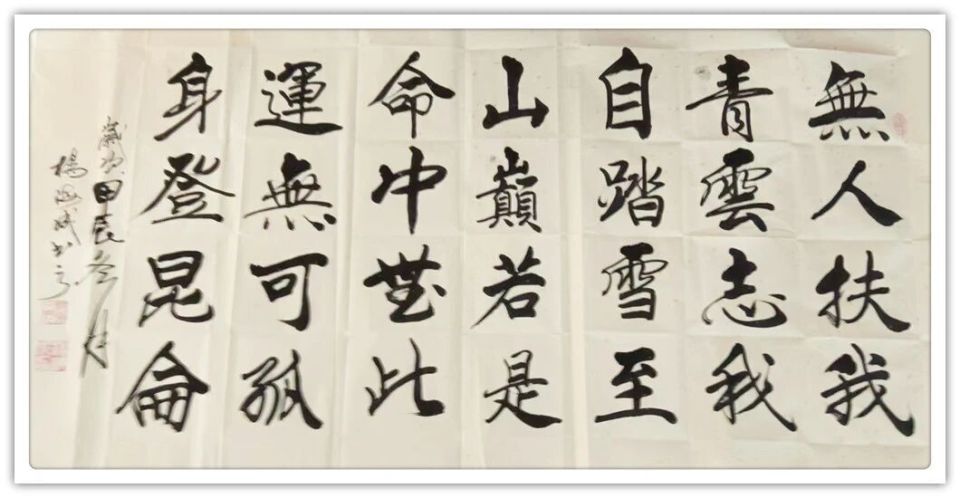 無人扶我
青雲志我
自踏雪至
山巔若是
命中無此
運無可孤
身登昆侖
歲次甲辰冬月
楊